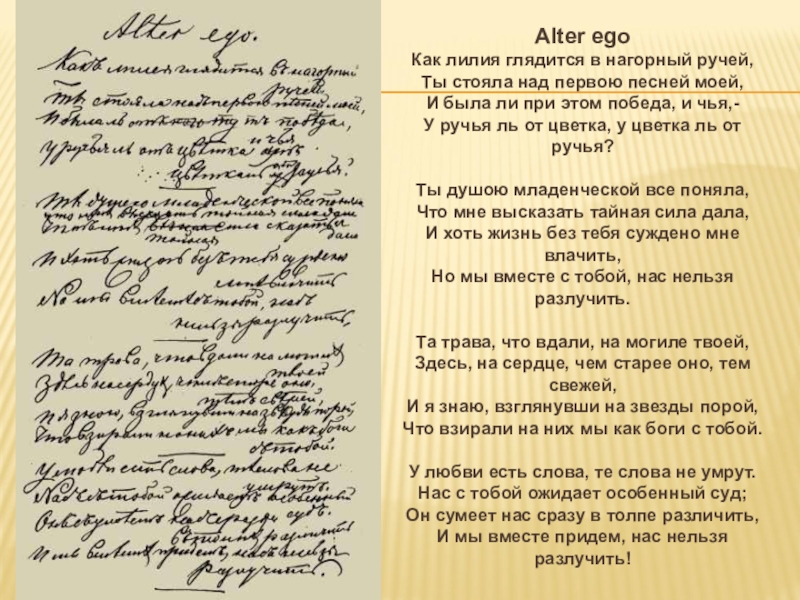 Alter ego.
Какъ лилея глядится въ нагорный
ручей,
Ты стояла надъ первою пѣсней моей,
у ручья ль отъ цвѣтка
и чья
цвѣтка ль ручья?
Ты душою младенческой все поняла
И хоть жизнь безъ тебя суждено
мнѣ влачить
Но мы вместѣ съ тобой, насъ
нельзя разлучить.
Та трава, что вдали на могилѣ
твоей
Здѣсь на сердцѣ, чѣмъ старѣ оно,
тѣмъ свѣжей,
И я знаю, взглянувши на звѣзды порой
Что взирали на нихъ мы какъ боги
съ тобой.
У любви есть слова, тѣ слова не
умрутъ.
Насъ съ тобой ожидаетъ особенный
судъ.
Онъ съумѣетъ насъ сразу
различить
И мы вместѣ придемъ, насъ нельзя
разлучить.
Alter ego
Как лилия глядится в нагорный ручей,
Ты стояла над первою песней моей,
И была ли при этом победа, и чья,-
У ручья ль от цветка, у цветка ль от
ручья?
Ты душою младенческой все поняла,
Что мне высказать тайная сила дала,
И хоть жизнь без тебя суждено мне
влачить,
Но мы вместе с тобой, нас нельзя
разлучить.
Та трава, что вдали, на могиле твоей,
Здесь, на сердце, чем старее оно, тем
свежей,
И я знаю, взглянувши на звезды порой,
Что взирали на них мы как боги с тобой.
У любви есть слова, те слова не умрут.
Нас с тобой ожидает особенный суд;
Он сумеет нас сразу в толпе различить,
И мы вместе придем, нас нельзя
разлучить!